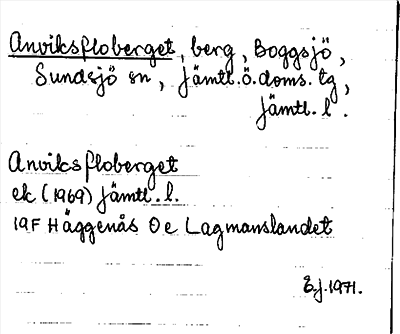 Anviksfloberget, berg, Boggsjö,
Sundsjö sn, Jämtl.ö.doms.tg,
Jämtl.l.
Anviksfloberget
ek (1969) Jämtl.l.
19F Häggenås Oe Lagmanslandet
E.J.1971.